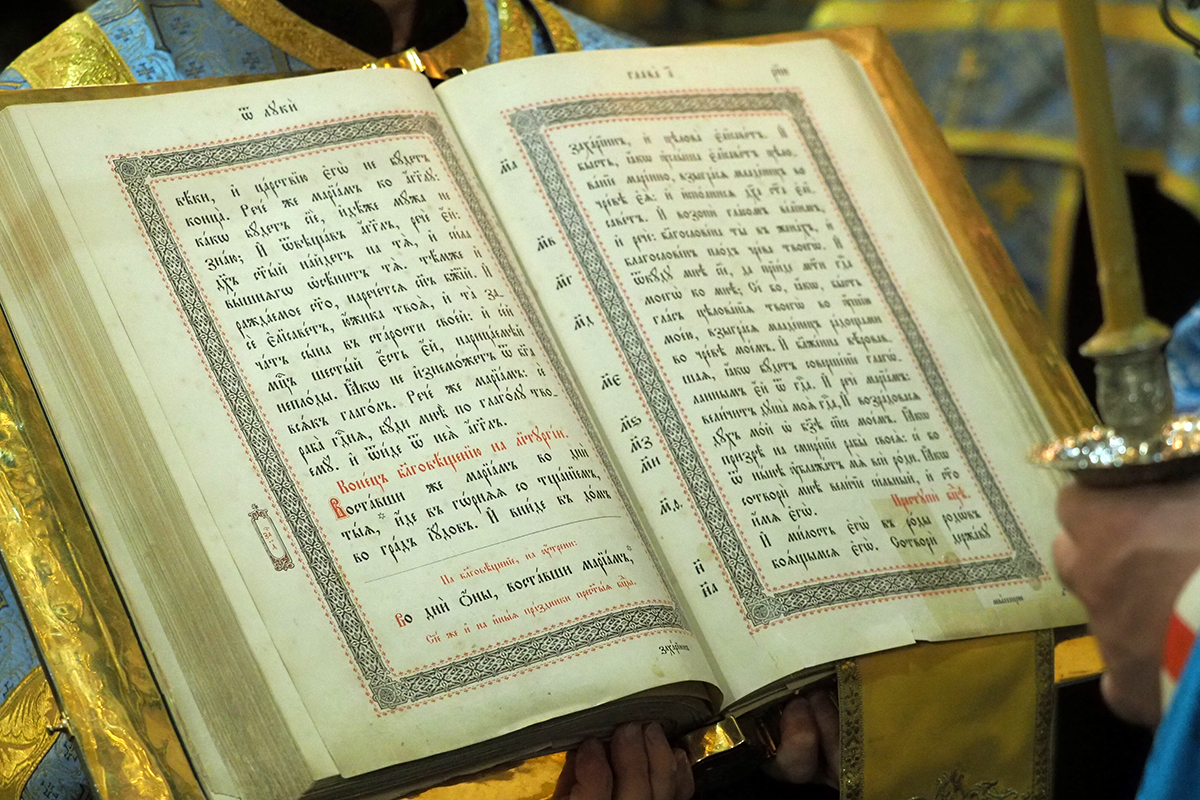 Ѿ лꙋкѝ
вѣ́ки, и҆ ца́рствїю є҆гѡ̀ не бꙋ́детъ
конца̀. Рече́ же марїа́мъ ко а҆́гг҃лꙋ:
ка́кѡ бꙋ́детъ сїѐ, и҆дѣ́же мꙋ́жа не
зна́ю; И҆ ѿвѣща́въ а҆́гг҃лъ, речѐ є҆́й:
дх҃ъ ст҃ы́й на́йдетъ на тѧ̀, и҆ си́ла
вы́шнѧгѡ ѡ҆сѣни́тъ тѧ̀, тѣ́мже и҆
ражда́емое ст҃о, нарече́тсѧ сн҃ъ бж҃їй. И҆
сѐ є҆лїсаве́тъ, ю҆́жика твоѧ̀, и҆ та̀ за-
ча́тъ сы́на въ ста́рости свое́й: и҆ се́й
мцⷭ҇ъ шесты́й є҆́сть є҆́й, нарица́емѣй
непло́ды. Ꙗ҆́кѡ не и҆знемо́жетъ ѿ бг҃а
всѧ́къ глаго́лъ. Рече́ же марїа́мъ: сѐ
раба̀ гдⷭ҇нѧ, бꙋ́ди мнѣ̀ по глаго́лꙋ тво-
емꙋ̀. и҆ ѿи́де ѿ неѧ̀ а҆́гг҃лъ.
Коне́цъ бл҃говѣ́щенїю на лїтꙋргі́и.
Воста́вши же марїа́мъ во дни̑
ты̑ѧ, и҆́де въ гѡ́рнѧѧ со тща́нїемъ,
во гра́дъ і҆ꙋ́довъ. И҆ вни́де въ до́мъ
На бл҃говѣ́щенїе, на ᲂу҆́трени:
Во дни̑ ѻ҆́ны, воста́вши марїа́мъ,
Сїе́ же и҆ на и҆ны̑ѧ пра́здники прест҃ы́ѧ бцⷣы.
заха́рїинъ
глава̀ а҃
заха́рїинъ, и҆ цѣлова̀ є҆лїсаве́тъ. И҆
бы́сть, ꙗ҆́кѡ ᲂу҆слы́ша є҆лїсаве́тъ цѣло-
ва́нїе марі́ино, взыгра́сѧ младе́нецъ во
чре́вѣ є҆ѧ̀: и҆ и҆спо́лнисѧ дх҃а ст҃а є҆лї-
саве́тъ. И҆ возопѝ гла́сомъ ве́лїимъ,
и҆ речѐ: благослове́на ты̀ въ жена́хъ, и҆
благослове́нъ пло́дъ чре́ва твоегѡ̀. И҆
ѿкꙋ́дꙋ мнѣ̀ сїѐ, да прїи́де мт҃и гдⷭ҇а
моегѡ̀ ко мнѣ̀; Се́ бо, ꙗ҆́кѡ бы́сть
гла́съ цѣлова́нїѧ твоегѡ̀ во ᲂу҆́шїю
моє́ю, взыгра́сѧ младе́нецъ ра́дощами
во чре́вѣ мое́мъ. И҆ бл҃же́нна вѣ́рова-
вшаѧ, ꙗ҆́кѡ бꙋ́детъ соверше́нїе глаго́-
ланнымъ є҆́й ѿ гдⷭ҇а. И҆ речѐ марїа́мъ:
вели́читъ дꙋша̀ моѧ̀ гдⷭ҇а, И҆ возра́довасѧ
дꙋ́хъ мо́й ѡ҆ бз҃ѣ сп҃сѣ мое́мъ. Ꙗ҆́кѡ
призрѣ̀ на смире́нїе рабы̀ своеѧ̀: се́ бо
ѿ ны́нѣ ᲂу҆блажа́тъ мѧ̀ всѝ ро́ди. Ꙗ҆́кѡ
сотворѝ мнѣ̀ вели́чїе си́льный, и҆ ст҃о
и҆́мѧ є҆гѡ̀.
И҆ ми́лость є҆гѡ̀ въ ро́ды родѡ́въ
боѧ́щымсѧ є҆гѡ̀. Сотворѝ держа́вꙋ
м҃а
м҃в
м҃г
м҃д
м҃є
м҃ѕ
м҃з
м҃и
м҃ѳ
н҃
н҃а